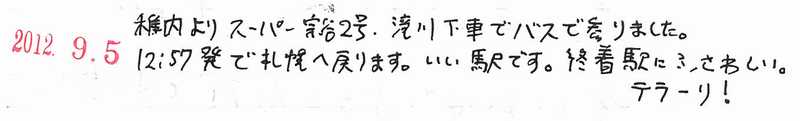 2012. 9.5
稚内よりスーパー宗谷2号. 滝川下車でバスで参りました。
12:57発で札幌へ戻ります。いい駅です。終着駅にふさわしい。
テラーリ!